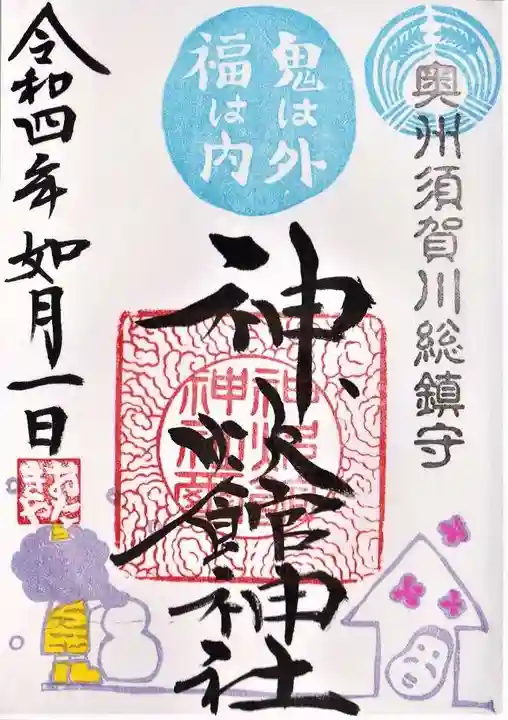 奥州須賀川総鎮守
鬼は外
福は内
神炊館神社
令和四年如月一日